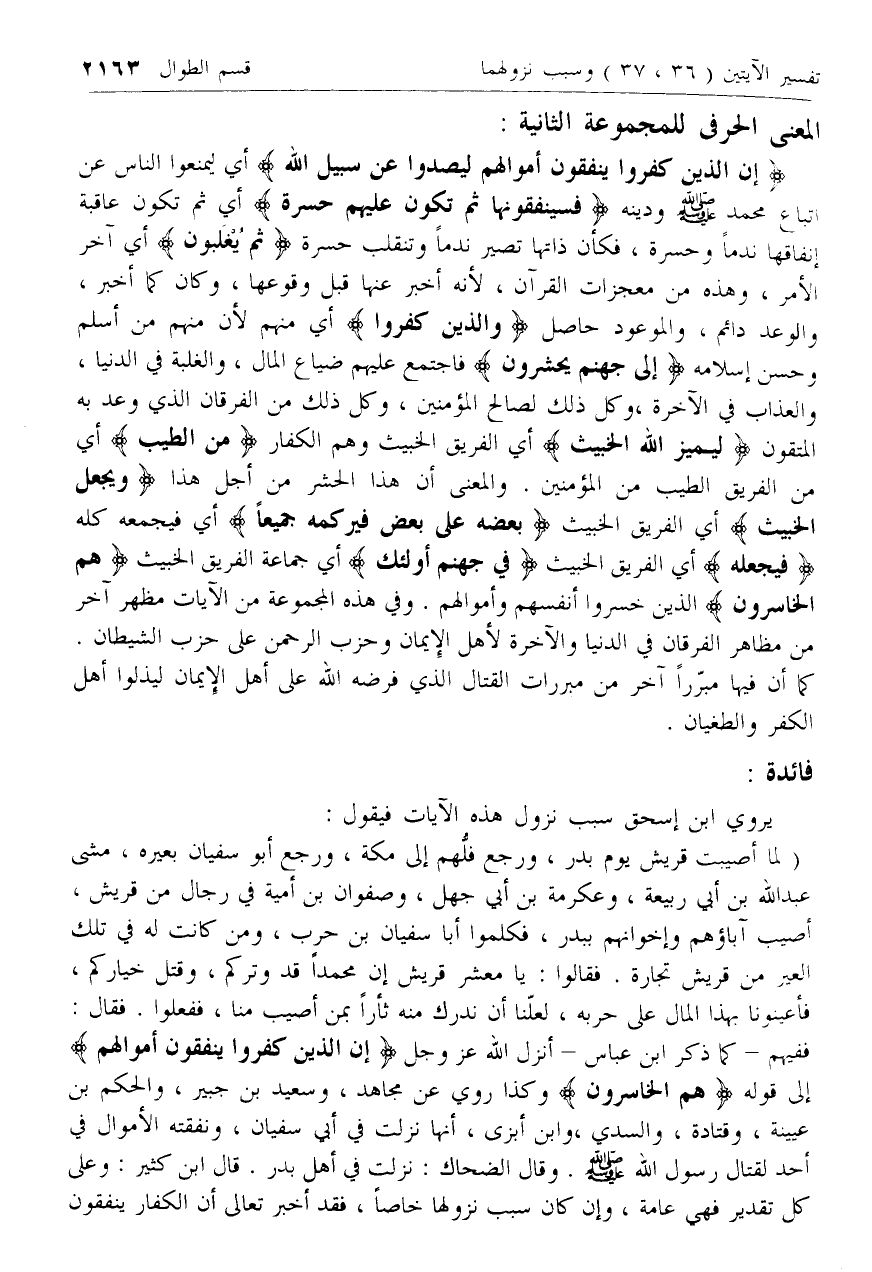 تفسير الآيتين ( ٣٦ ، ٣٧ ) وسبب نزولهما قسم الطوال ٢١٦٣
المعنى الحرفى للمجموعة الثانية :
﴿ إن الذين كفروا ينفقون أموالهم ليصدوا عن سبيل الله ﴾ أي ليمنعوا الناس عن
اتباع محمد ﷺ ودينه ﴿ فسينفقونها ثم تكون عليهم حسرة ﴾ أي ثم تكون عاقبة
إنفاقها ندماً وحسرة ، فكأن ذاتها تصير ندماً وتنقلب حسرة ﴿ ثم يُغْلَبون ﴾ أي آخر
الأمر ، وهذه من معجزات القرآن ، لأنه أخبر عنها قبل وقوعها ، وكان كما أخبر ،
والوعد دائم ، والموعود حاصل ﴿ والذين كفروا ﴾ أي منهم لأن منهم من أسلم
وحسن إسلامه ﴿ إلى جهنم يحشرون ﴾ فاجتمع عليهم ضياع المال ، والغلبة في الدنيا ،
والعذاب في الآخرة ،وكل ذلك لصالح المؤمنين ، وكل ذلك من الفرقان الذي وعد به
المتقون ﴿ ليـميز الله الخبيث ﴾ أي الفريق الخبيث وهم الكفار ﴿ من الطيب ﴾ أي
من الفريق الطيب من المؤمنين . والمعنى أن هذا الحشر من أجل هذا ﴿ ويجعل
الخبيث ﴾ أي الفريق الخبيث ﴿ بعضه على بعض فيركمه جميعاً ﴾ أي فيجمعه كله
﴿ فيجعله ﴾ أي الفريق الخبيث ﴿ في جهنم أولئك ﴾ أي جماعة الفريق الخبيث ﴿ هم
الخاسرون ﴾ الذين خسروا أنفسهم وأموالهم . وفي هذه المجموعة من الآيات مظهر آخر
من مظاهر الفرقان في الدنيا والآخرة لأهل الإيمان وحزب الرحمن على حزب الشيطان .
كما أن فيها مبرّراً آخر من مبررات القتال الذي فرضه الله على أهل الإيمان ليذلوا أهل
الكفر والطغيان .
فائدة :
يروي ابن إسحق سبب نزول هذه الآيات فيقول :
( لما أصيبت قريش يوم بدر ، ورجع فلُّهم إلى مكة ، ورجع أبو سفيان بعيره ، مشى
عبدالله بن أبي ربيعة ، وعكرمة بن أبي جهل ، وصفوان بن أمية في رجال من قريش ،
أصيب آباؤهم وإخوانهم ببدر ، فكلموا أبا سفيان بن حرب ، ومن كانت له في تلك
العير من قريش تجارة . فقالوا : يا معشر قريش إن محمداً قد وتركم ، وقتل خياركم ،
فأعينونا بهذا المال على حربه ، لعلّنا أن ندرك منه ثأراً بمن أصيب منا ، ففعلوا . فقال :
ففيهم – كما ذكر ابن عباس – أنزل الله عز وجل ﴿ إن الذين كفروا ينفقون أموالهم ﴾
إلى قوله ﴿ هم الخاسرون ﴾ وكذا روي عن مجاهد ، وسعيد بن جبير ، والحكم بن
عيينة ، وقتادة ، والسدي ،وابن أبزى ، أنها نزلت في أبي سفيان ، ونفقته الأموال في
أحد لقتال رسول الله ﷺ . وقال الضحاك : نزلت في أهل بدر . قال ابن كثير : وعلى
كل تقدير فهي عامة ، وإن كان سبب نزولها خاصاً ، فقد أخبر تعالى أن الكفار ينفقون